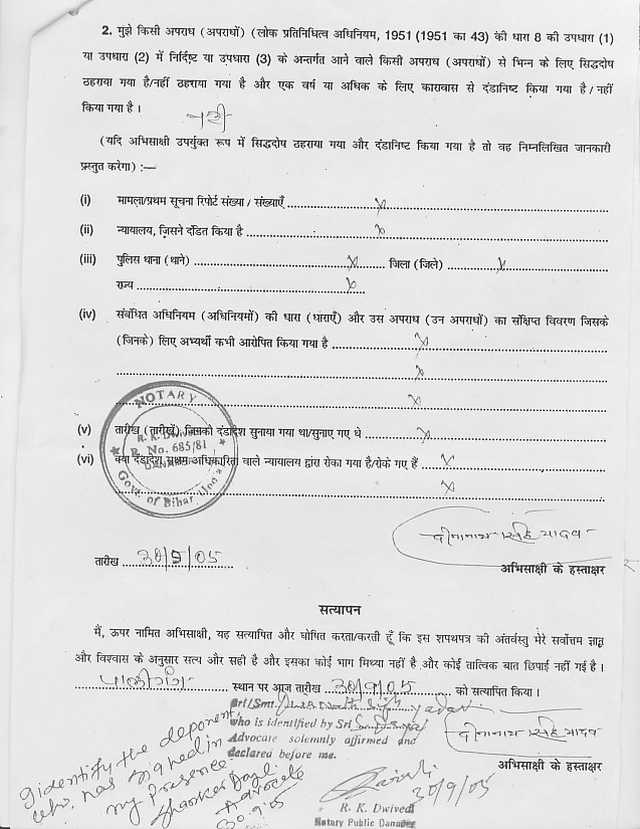 2. मुझे किसी अपराध (अपराधों) (लोक प्रतिनिधित्व अधिनियम, 1951 (1951 का 43) की धारा 8 की उपधारा (1)
या उपधारा (2) में निर्दिष्ट या उपधारा (3) के अन्तर्गत आने वाले किसी अपराध (अपराधों) से भिन्न के लिए सिद्धदोष
ठहराया गया है/नहीं ठहराया गया है और एक वर्ष या अधिक के लिए कारावास से दंडानिष्ट किया गया है / नहीं
किया गया है ।
नहीं
(यदि अभिसाक्षी उपर्युक्त रूप में सिद्धदोष ठहराया गया और दंडानिष्ट किया गया है तो वह निम्नलिखित जानकारी
प्रस्तुत करेगा) :—
(i) मामला/प्रथम सूचना रिपोर्ट संख्या / संख्याएँ ........ x ........
(ii) न्यायालय, जिसने दंडित किया है ........ x ........
(iii) पुलिस थाना (थाने) ........ x ........ जिला (जिले) ........ x ........
राज्य ........ x ........
(iv) संबंधित अधिनियम (अधिनियमों) की धारा (धाराएँ) और उस अपराध (उन अपराधों) का संक्षिप्त विवरण जिसके
(जिनके) लिए अभ्यर्थी कभी आरोपित किया गया है ........ x ........
........ x ........
........ x ........
NOTARY
R. K. Dwivedi
R. No. 685/81
DANAPUR
Govt. of Bihar
(v) तारीख (तारीखें) जिनको दंडादेश सुनाया गया था/सुनाए गए थे ........ x ........
(vi) क्या दंडादेश सक्षम अधिकारिता वाले न्यायालय द्वारा रोका गया है/रोके गए हैं ........ x ........
........ x ........
दीनानाथ सिंह यादव
तारीख 30/9/05
अभिसाक्षी के हस्ताक्षर
सत्यापन
मैं, ऊपर नामित अभिसाक्षी, यह सत्यापित और घोषित करता/करती हूँ कि इस शपथपत्र की अंतर्वस्तु मेरे सर्वोत्तम ज्ञान
और विश्वास के अनुसार सत्य और सही है और इसका कोई भाग मिथ्या नहीं है और कोई तात्विक बात छिपाई नहीं गई है ।
पालीगंज स्थान पर आज तारीख 30/9/05 को सत्यापित किया ।
Sri/Smt. Dina Nath Singh Yadav
who is identified by Sri
Advocate solemnly affirmed and
declared before me.
दीनानाथ सिंह यादव
अभिसाक्षी के हस्ताक्षर
I identify the deponent
who has signed in
my presence.
Shankar Dayal
Advocate
30.9.05
30/9/05
R. K. Dwivedi
Notary Public Danapur